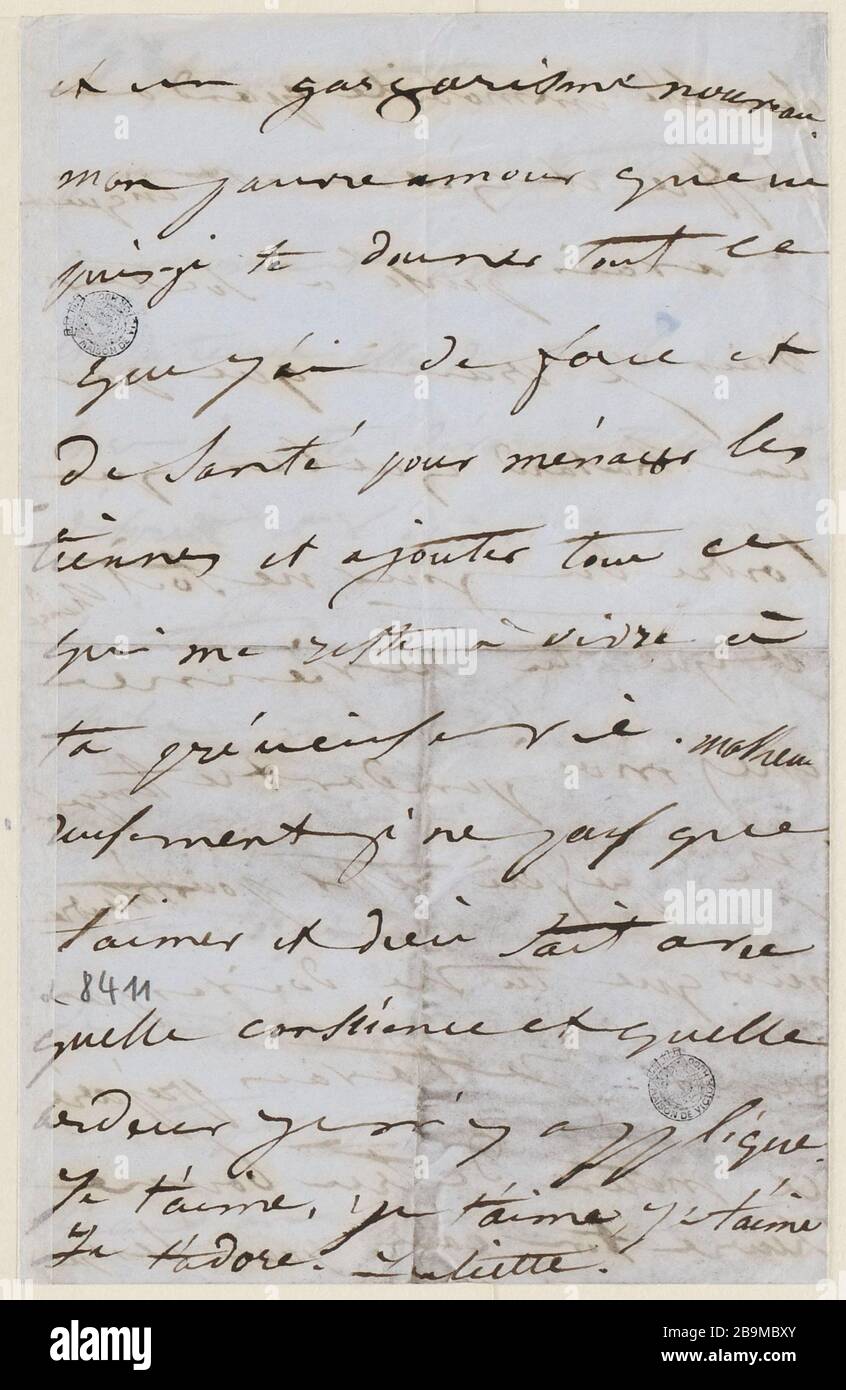 et un gargarisme nouveau.
mon pauvre amour que ne
puis-je te donner tout ce
que j'ai de force et
de santé pour ménager les
tiennes et ajouter tout ce
qui me reste à vivre à
ta précieuse vie. malheu
reusement je ne sais que
t'aimer et dieu sait avec
8411
quelle conscience et quelle
ardeur je m'y applique.
Je t'aime, je t'aime, je t'aime
Je t'adore. Juliette.
MAISON DE VICTOR HUGO
MAISON DE VICTOR HUGO
alamy
Image ID: 2B9MBXY
www.alamy.com